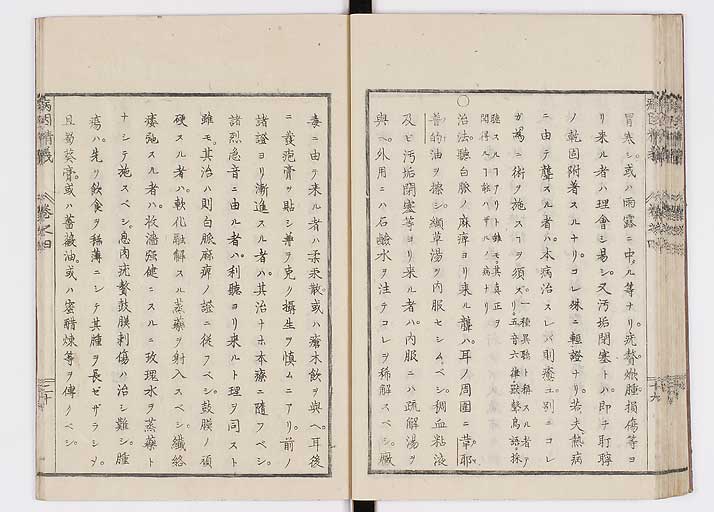 冒寒シ或ハ雨露ニ中ル等ナリ疣贅嫩腫損傷等ヨ
リ来ル者ハ理會シ易シ又汚垢閉塞トハ即チ耵聹
ノ乾固附着スルナリコレ殊ニ輕證ナリ若夫熱病
ニ由テ聾スル者ハ本病治スレバ則癒ユ別ニコレ
ガ為ニ術ヲ施スヿヲ須ズ
一種異聴ト稱スル者ア
リ五音六律獣聲鳥語ヲ採
聴スルヿアリト雖モ其真正ヲ
〇治法聴白脉ノ麻痺ヨリ来ル聾ハ耳ノ周圍ニ葦耶
普的油ヲ擦シ纈草湯ヲ内服セシムベシ稠血粘液
及ビ汚垢閉塞等ヨリ来ル者ハ内服ニハ疏解湯ヲ
與ヘ外用ニハ石鹸水ヲ注テコレヲ稀解スベシ黴
毒ニ由ヲ来ル者ハ汞散或ハ瘡木飲ヲ與ヘ耳後
ニ發疱膏ヲ貼シ葷ヲ克リ攝生ヲ慎ムニアリ前ノ
諸證ヨリ漸進スル者ハ其治ナホ本療ニ隨フベシ
諸烈急音ニ由ル者ハ利聴ヨリ来ルト理ヲ同スト
雖モ其治ハ則白脉麻痺ノ證ニ従フベシ鼓膜ノ頑
硬スル者ハ軟化融解スル蒸藥ヲ射入スベシ纎絡
痿弛スル者ハ收濇強健ニスルニ玫瑰水ヲ蒸藥ト
ナシテ施スベシ息肉疣贅鼓膜刺傷ハ治シ難シ腫
瘍ハ先ヅ飲食ヲ稀薄ニシテ其腫ヲ長ゼザラシメ
且蜀葵膏或ハ薔薇油或ハ蜜醋煉等ヲ傅クベシ
病因精義
巻之四
二十